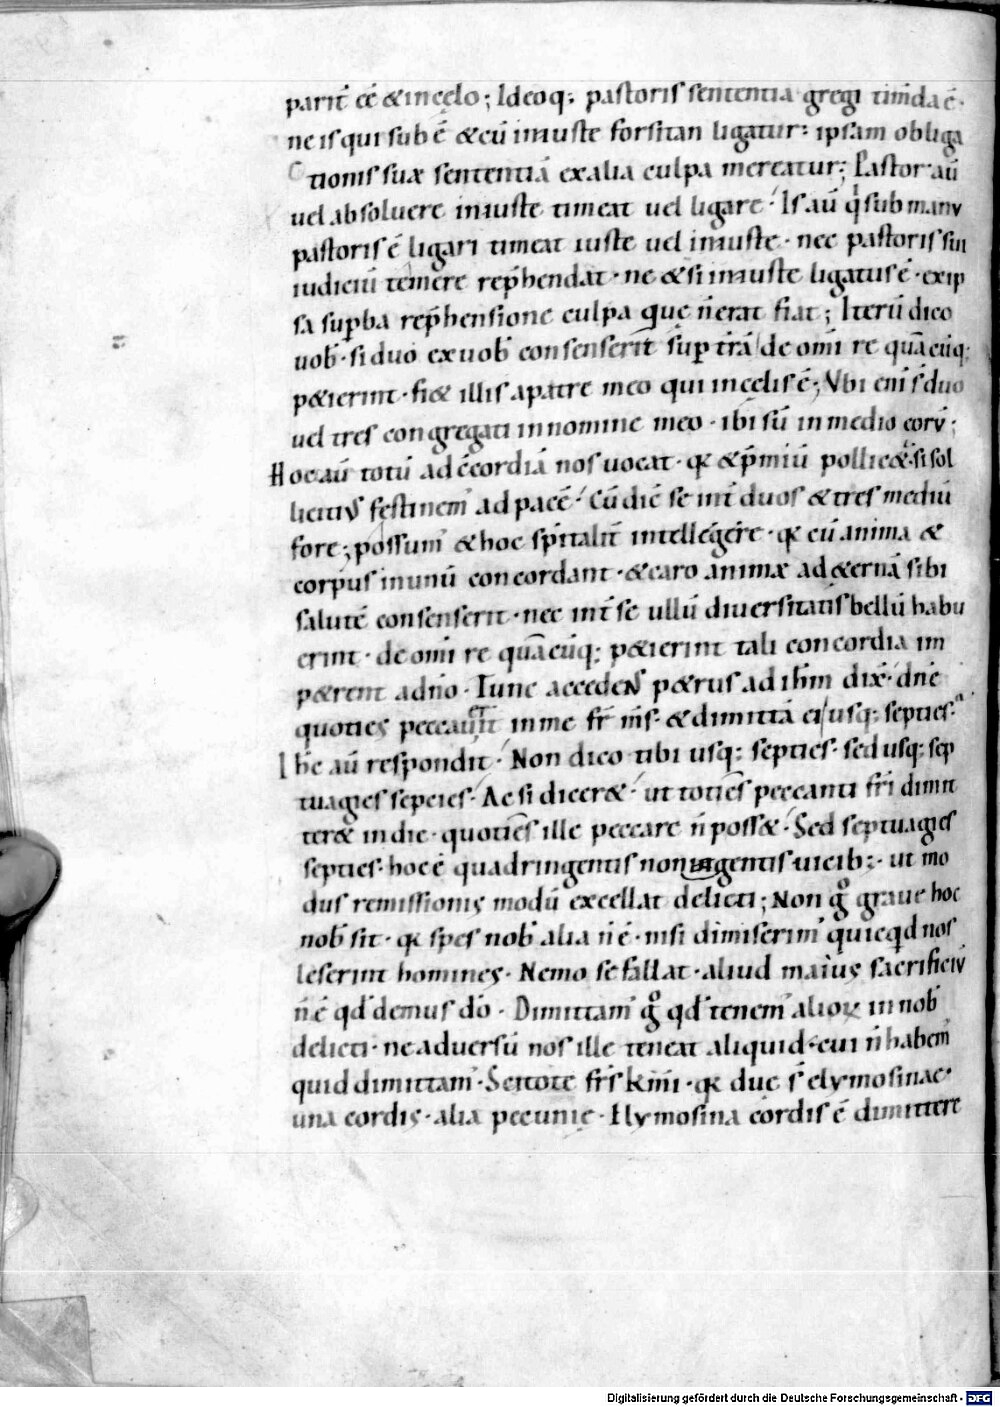 parit̄ eē &incęlo; Ideoq; pastoris sententia gregi tim̄da ē·
ne is qui sub ē &cū iniuste forsitan ligatur: ipsam obliga
tionis suæ sententiā exalia culpa mereatur; Pastor aū
uel absoluere iniuste timeat uel ligare· Is aū q̇ sub manu
pastoris ē ligari timeat iuste uel iniuste· nec pastoris sui
iudiciū temere rep̄hendat· ne &si iniuste ligatus ē· exip
sa sup̄ba rep̄hensione culpa quę n̄erat fiat; Iterū dico
uob̄· si duo ex uob̄ consenserīt sup t̄rā de om̄i re quācūq;
p&ierint· fi& illis apatre meo qui incęlis ē; Vbi eni s̄ duo
uel tres congregati innomine meo· ibi sū in medio eorū;
Hoc aū totū ad c̄cordiā nos uocat· qꝛ &p̄miū pollic&· si sol
licitius festinem̄ ad pacē· Cū dic̄ se int̄ duos & tres mediū
fore; possum̄ & hoc sp̄italit̄ intellegere· qꝛ cū anima &
corpus inunū concordant· &caro animæ ad &ernā sibi
salutē consenserit· nec int̄ se ullū diuersitatis bellū habu
erint· de om̄i re quācūq; p&ierint tali concordia im
p&rent adn̄o· Tunc accedens p&rus ad ih̄m dix̄· dn̄e
quoties peccauerit in me fr̄ m̄s· &dimittā ei usq; septies·
Ih̄c aū respondit· Non dico tibi usq; septies· sed usq; sep
tuagies sepcies· Ac si dicer&· ut totiēs peccanti fr̄i dimit
ter& in die· quotiēs ille peccare n̄ poss&· Sed septuagies
septies· hoc ē quadringentis nonagentis uicib;· ut mo
dus remissionis modū excellat delicti; Non g̊ graue hoc
nob̄ sit· qꝛ spes nob̄ alia n̄ ē· nisi dimiserim̄ quicq̄d nos
leserint homines· Nemo se fallat· aliud maius sacrificiū
n̄ ē qd̄ demus dō· Dimittam̄ g̊ qd̄ tenem̄ alioꝝ in nob̄
delicti· ne aduersū nos ille teneat aliquid· cui n̄ habem̄
quid dimittam̄· Scitote fr̄s k̄mi· qꝛ duę s̄ elymosinae·
una cordis· alia pecunię· Elymosina cordis ē dimittere
Digitalisierung gefördert durch die Deutsche Forschungsgemeinschaft - DFG